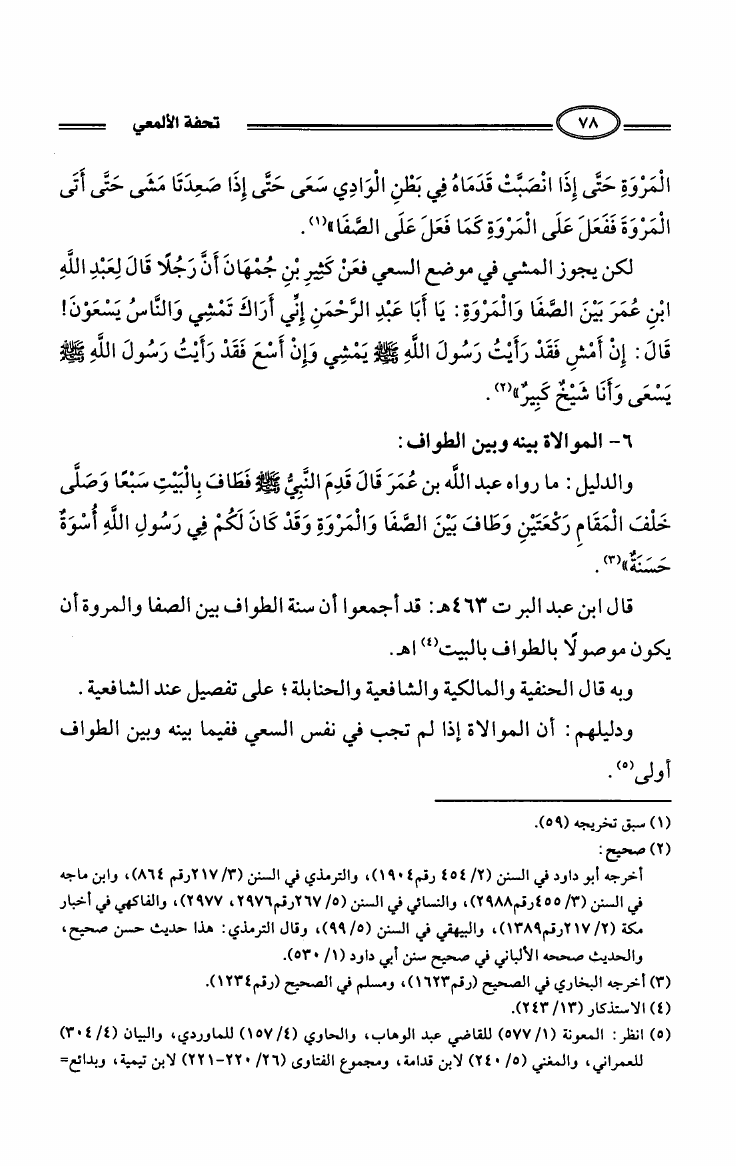 ٧٨ تحفة الألمعي
الْمَرْوَةِ حَتَّى إِذَا انْصَبَّتْ قَدَمَاهُ فِي بَطْنِ الْوَادِي سَعَى حَتَّى إِذَا صَعِدَتَا مَشَى حَتَّى أَتَى
الْمَرْوَةَ فَفَعَلَ عَلَى الْمَرْوَةِ كَمَا فَعَلَ عَلَى الصَّفَا»(١).
لكن يجوز المشي في موضع السعي فعَنْ كَثِيرِ بْنِ جُمْهَانَ أَنَّ رَجُلًا قَالَ لِعَبْدِ اللَّهِ
ابْنِ عُمَرَ بَيْنَ الصَّفَا وَالْمَرْوَةِ: يَا أَبَا عَبْدِ الرَّحْمَنِ إِنِّي أَرَاكَ تَمْشِي وَالنَّاسُ يَسْعَوْنَ!
قَالَ: إِنْ أَمْشِ فَقَدْ رَأَيْتُ رَسُولَ اللَّهِ ﷺ يَمْشِي وَإِنْ أَسْعَ فَقَدْ رَأَيْتُ رَسُولَ اللَّهِ ﷺ
يَسْعَى وَأَنَا شَيْخٌ كَبِيرٌ»(٢).
٦- الموالاة بينه وبين الطواف:
والدليل: ما رواه عبد اللَّه بن عُمَرَ قَالَ قَدِمَ النَّبِيُّ ﷺ فَطَافَ بِالْبَيْتِ سَبْعًا وَصَلَّى
خَلْفَ الْمَقَامِ رَكْعَتَيْنِ وَطَافَ بَيْنَ الصَّفَا وَالْمَرْوَةِ وَقَدْ كَانَ لَكُمْ فِي رَسُولِ اللَّهِ أُسْوَةٌ
حَسَنَةٌ»(٣).
قال ابن عبد البر ت ٤٦٣هـ: قد أجمعوا أن سنة الطواف بين الصفا والمروة أن
يكون موصولًا بالطواف بالبيت(٤) اهـ.
وبه قال الحنفية والمالكية والشافعية والحنابلة؛ على تفصيل عند الشافعية.
ودليلهم: أن الموالاة إذا لم تجب في نفس السعي ففيما بينه وبين الطواف
أولى(٥).
(١) سبق تخريجه (٥٩).
(٢) صحيح:
أخرجه أبو داود في السنن (٢/ ٤٥٤ رقم١٩٠٤)، والترمذي في السنن (٣/ ٢١٧رقم ٨٦٤)، وابن ماجه
في السنن (٣/ ٤٥٥رقم٢٩٨٨)، والنسائي في السنن (٥/ ٢٦٧رقم٢٩٧٦، ٢٩٧٧)، والفاكهي في أخبار
مكة (٢/ ٢١٧رقم١٣٨٩)، والبيهقي في السنن (٥/ ٩٩)، وقال الترمذي: هذا حديث حسن صحيح،
والحديث صححه الألباني في صحيح سنن أبي داود (١/ ٥٣٠).
(٣) أخرجه البخاري في الصحيح (رقم١٦٢٣)، ومسلم في الصحيح (رقم١٢٣٤).
(٤) الاستذكار (١٣/ ٢٤٣).
(٥) انظر: المعونة (١/ ٥٧٧) للقاضي عبد الوهاب، والحاوي (٤/ ١٥٧) للماوردي، والبيان (٤/ ٣٠٤)
للعمراني، والمغني (٥/ ٢٤٠) لابن قدامة، ومجموع الفتاوى (٢٦/ ٢٢٠-٢٢١) لابن تيمية، وبدائع=